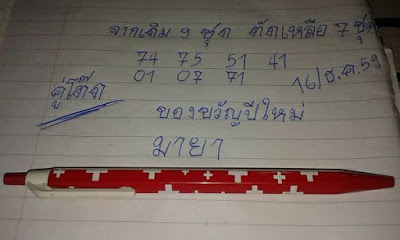 จากเดิม 9 ชุด ตัดเหลือ 7 ชุด
74 75 51 41
01 07 71
คู่โต๊ด
16/ธ.ค.59
ของขวัญปีใหม่
มายา